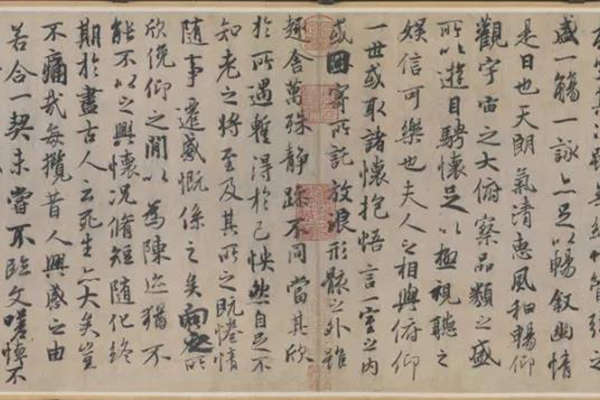 坐其次雖無絲竹管弦之
盛一觴一詠亦足以暢敘幽情
是日也天朗氣清惠風和暢仰
觀宇宙之大俯察品類之盛
所以遊目騁懷足以極視聽之
娛信可樂也夫人之相與俯仰
一世或取諸懷抱悟言一室之內
或因寄所託放浪形骸之外雖
趣舍萬殊靜躁不同當其欣
於所遇暫得於己怏然自足不
知老之將至及其所之既惓情
隨事遷感慨係之矣向之所
欣俛仰之閒以為陳迹猶不
能不以之興懷況脩短隨化終
期於盡古人云死生亦大矣豈
不痛哉每攬昔人興感之由
若合一契未嘗不臨文嗟悼不